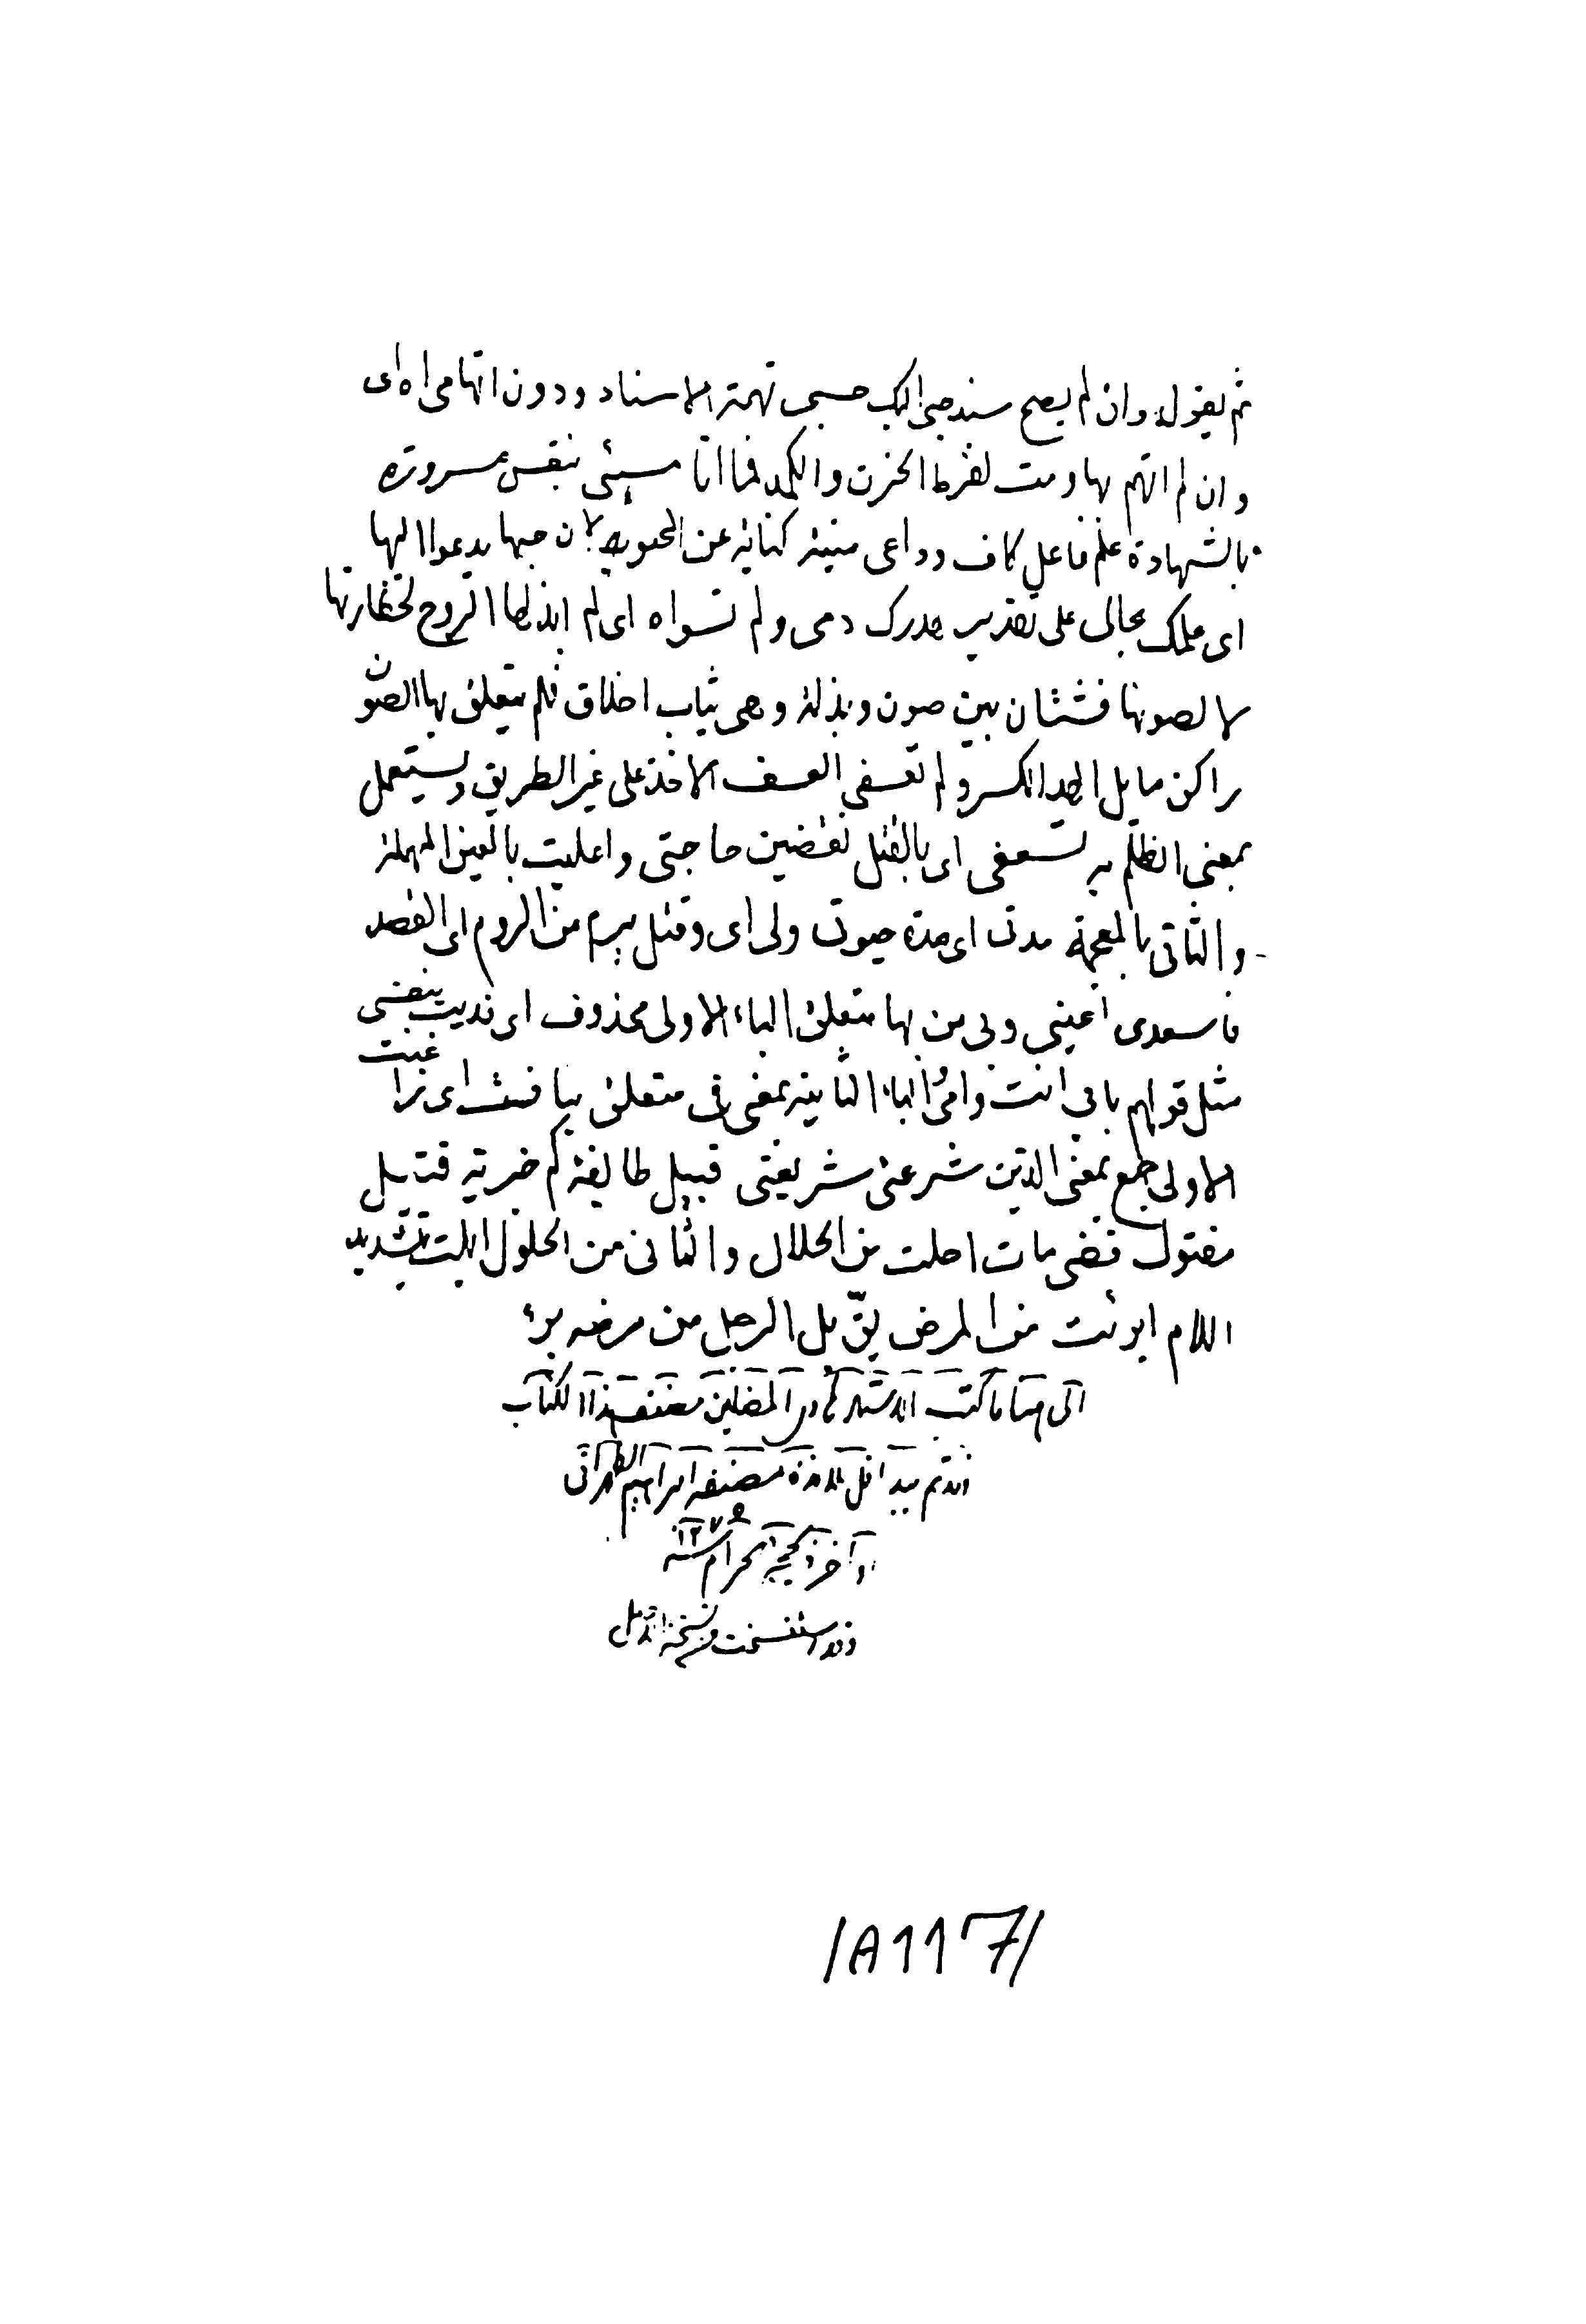 ثم يقول وان لم يصح سند حبى اليك حسبى تهمة الاسناد ودون اتهامى اه اى
وان لم اتهم بها ومت لفرط الحزن والكمد فما انا مسيئ بنفس مسرورة
بالشهادة علم فاعل كاف ودواعى منيته كناية عن المحبوبة لان حبها يدعوا اليها
اى علمك بحالى على تقدير هدرك دمى ولم تسواه اى لم ابذلها الروح لحقارتها
لا لصونها فشتان بين صون وبذلة وهى ثياب اخلاق فلم يتعلق بها الصون
راكن مايل الهد الكسر ولم تعسفى العسف الاخذ على غير الطريق ويستعمل
بمعنى الظلم به تسعفى اى بالقتل تقضين حاجتى واعليت بالعين المهملة
والثانى بالمعجمة مدتى اى مدة حيوتى ولى اى وقتل يرم من الروم اى القصد
فاسعدى اعينى وبى من بها متعلق الباء الاولى محذوف اى فديت بنفسى
مثل قولهم بابى انت وامى الباء الثانية بمعنى فى متعلق بنافست اى نرا غبت
الاولى جمع بمعنى الذين شرعتى شريعتى قبيل طايفة كم خبرية قتيل
مقتول قضى مات احلت من الحلال والثانى من الحلول ابلت بتشديد
اللام ابرئت من المرض يق بل الرجل من مرضه برئ
الى هنا ما كتب مصنف هذا الكتاب
قد تم بيد اقل تلامذة مصنفه ابراهيم الطهرانى
اواخر ذيحجة الحرام سنة ١٢٧٥
وقد استنسخت من نسخة الاصل
/A117/